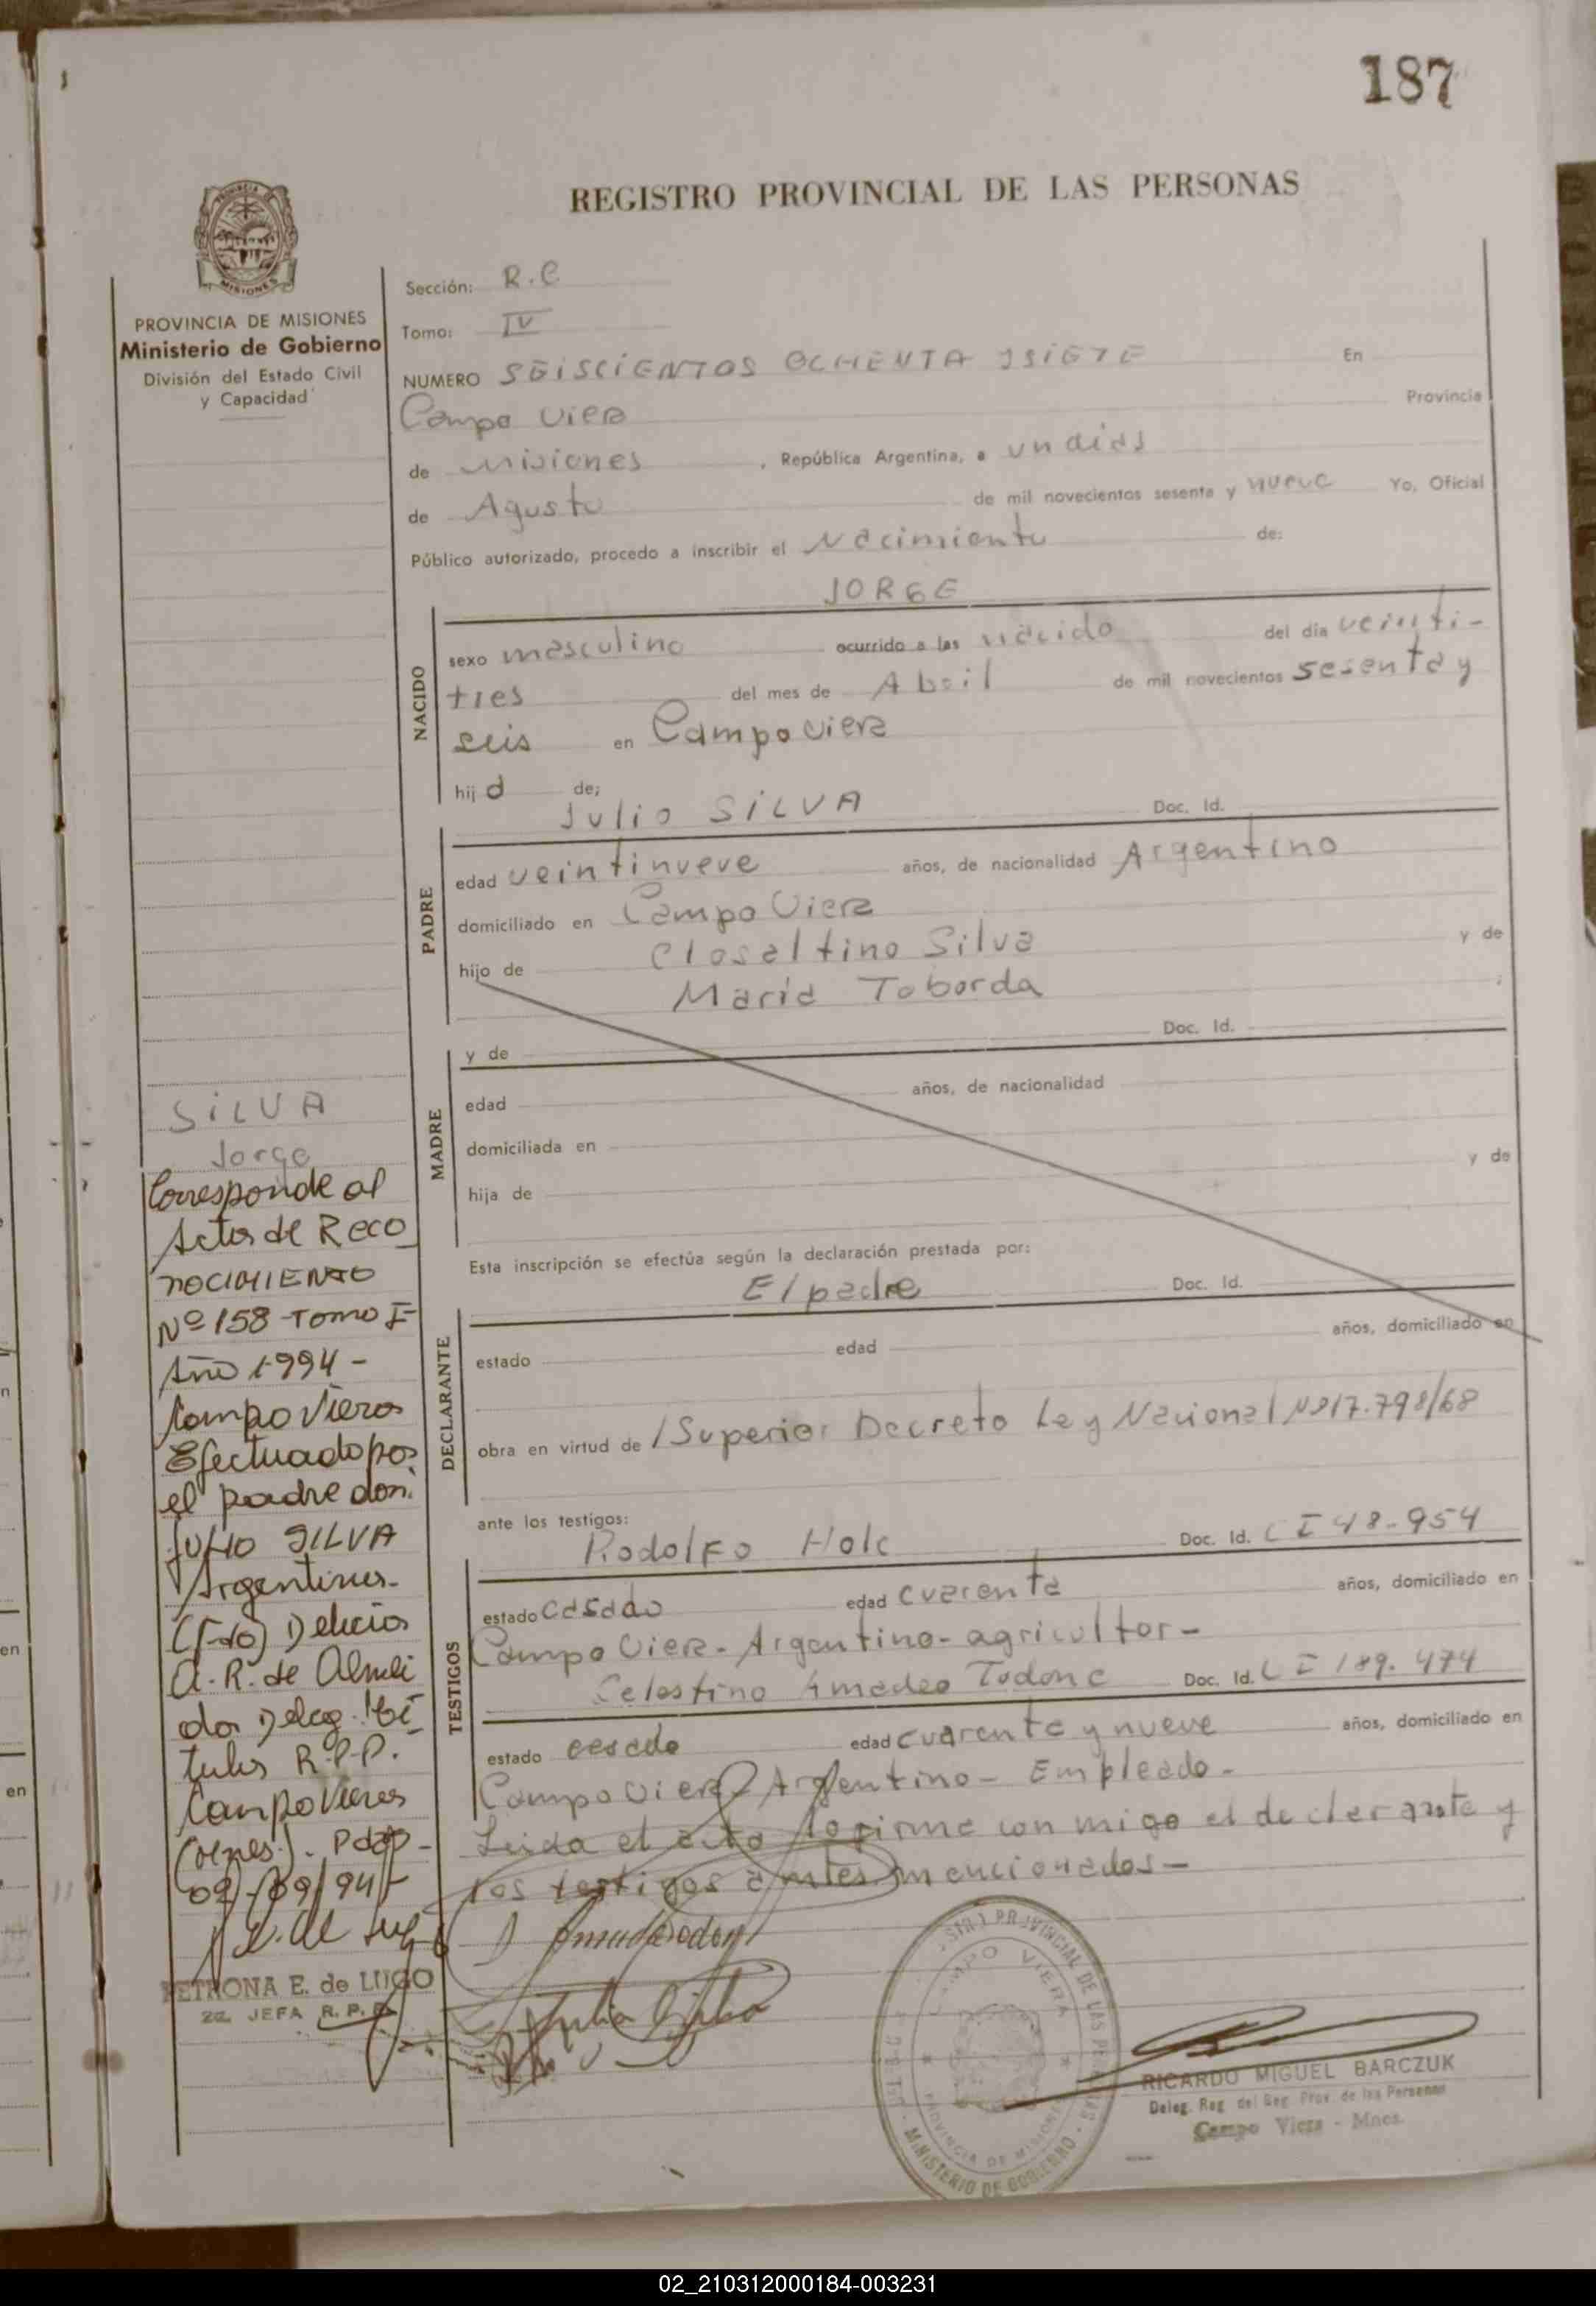 187
REGISTRO PROVINCIAL DE LAS PERSONAS
PROVINCIA DE MISIONES
Ministerio de Gobierno
División del Estado Civil
y Capacidad
Sección: R.C
Tomo: IV
NUMERO SEISCIENTOS OCHENTA YSIETE En
Campo Viera Provincia
de Misiones , República Argentina, a un dias
de Agusto de mil novecientos sesenta y nueve Yo, Oficial
Público autorizado, procedo a inscribir el Nacimiento de:
JORGE
NACIDO
sexo masculino ocurrido a las nacido del día veinti-
tres del mes de Abril de mil novecientos sesenta y
seis en Campo Viera
hijo de;
Julio SILVA Doc. Id.
PADRE
edad veintinueve años, de nacionalidad Argentino
domiciliado en Campo Viera
hijo de Closaltino Silva y de
Maria Toborda ;
y de Doc. Id.
MADRE
edad años, de nacionalidad
domiciliada en
hija de y de
Esta inscripción se efectúa según la declaración prestada por:
El padre Doc. Id.
DECLARANTE
estado edad años, domiciliado en
obra en virtud de /Superior Decreto Ley Nacional Nº17.798/68
ante los testigos:
Rodolfo Holc Doc. Id. CI 48-954
TESTIGOS
estado casado edad cuarenta años, domiciliado en
Campo Viera- Argentino- agricultor-
Celestino Amadeo Todone Doc. Id. CI 189.474
estado casado edad cuarenta y nueve años, domiciliado en
Campo Viera Argentino- Empleado-
Leida el acta la firma con migo el declerante y
los testigos antes mencionados-
SILVA
Jorge
Corresponde al
Acta de Reco
nocimiento
Nº 158 Tomo I
Año 1994-
Campo Viera
Efectuado por
el padre don:
Julio SILVA
Argentino.
(Fdo) Delicia
A. R. de Almei
da Deleg. Ti
tular R.P.P.
Campo Viera
(Mnes). Pdas-
09/09/94
PETRONA E. de LUGO
2a. JEFA R. P. P.
Julio Silva
MINISTERIO DE GOBIERNO
CAMPO VIERA
PROVINCIA DE MISIONES
RICARDO MIGUEL BARCZUK
Deleg. Reg. del Reg. Prov. de las Personas
Campo Viera - Mnes.
02_210312000184-003231